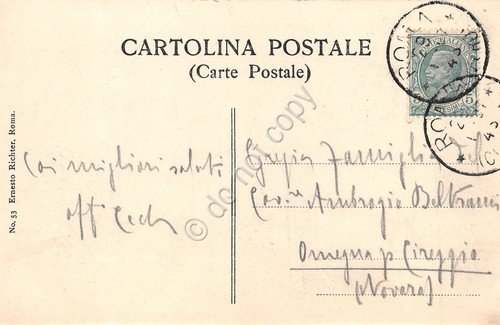 CARTOLINA POSTALE
(Carte Postale)
ROMA
ROMA
5
No. 53 Ernesto Richter, Roma.
Coi migliori saluti
aff
Gregia Famiglia
Cav. Ambrogio
Omegna p. Cireggio
(Novara)
do not copy